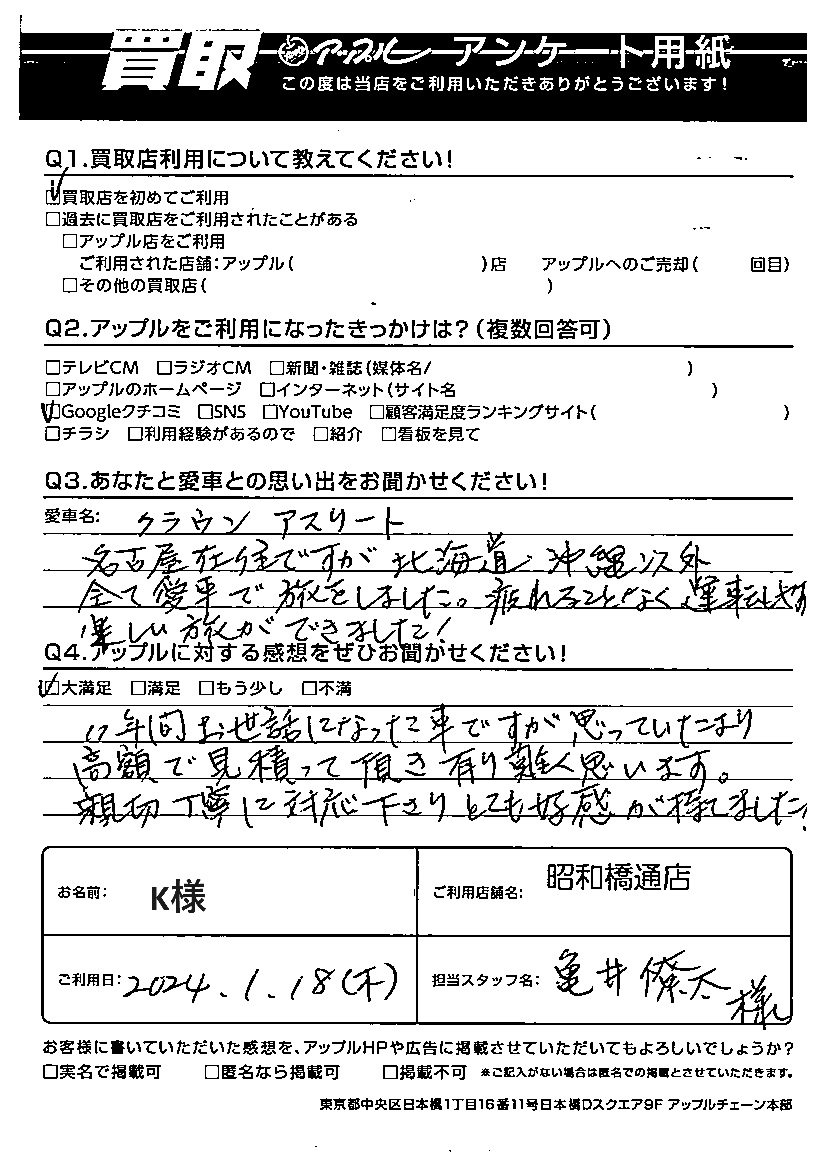 買取 アップル アンケート用紙
この度は当店をご利用いただきありがとうございます!
Q1.買取店利用について教えてください!
☑買取店を初めてご利用
□過去に買取店をご利用されたことがある
□アップル店をご利用
ご利用された店舗:アップル( )店 アップルへのご売却( 回目)
□その他の買取店( )
Q2.アップルをご利用になったきっかけは?(複数回答可)
□テレビCM □ラジオCM □新聞・雑誌(媒体名/ )
□アップルのホームページ □インターネット(サイト名 )
☑Googleクチコミ □SNS □YouTube □顧客満足度ランキングサイト( )
□チラシ □利用経験があるので □紹介 □看板を見て
Q3.あなたと愛車との思い出をお聞かせください!
愛車名: クラウン アスリート
名古屋在住ですが北海道、沖縄以外
全て愛車で旅をしました。疲れることなく運転しやす
楽しい旅ができました!
Q4.アップルに対する感想をぜひお聞かせください!
☑大満足 □満足 □もう少し □不満
11年間お世話になった車ですが、思っていたより
高額で見積って頂き有り難く思います。
親切丁寧に対応下さりとても好感が持てました!
お名前: K様 ご利用店舗名: 昭和橋通店
ご利用日: 2024.1.18(木) 担当スタッフ名: 亀井僚太様
お客様に書いていただいた感想を、アップルHPや広告に掲載させていただいてもよろしいでしょうか?
□実名で掲載可 □匿名なら掲載可 □掲載不可 ※ご記入がない場合は匿名での掲載とさせていただきます。
東京都中央区日本橋1丁目16番11号日本橋Dスクエア9F アップルチェーン本部